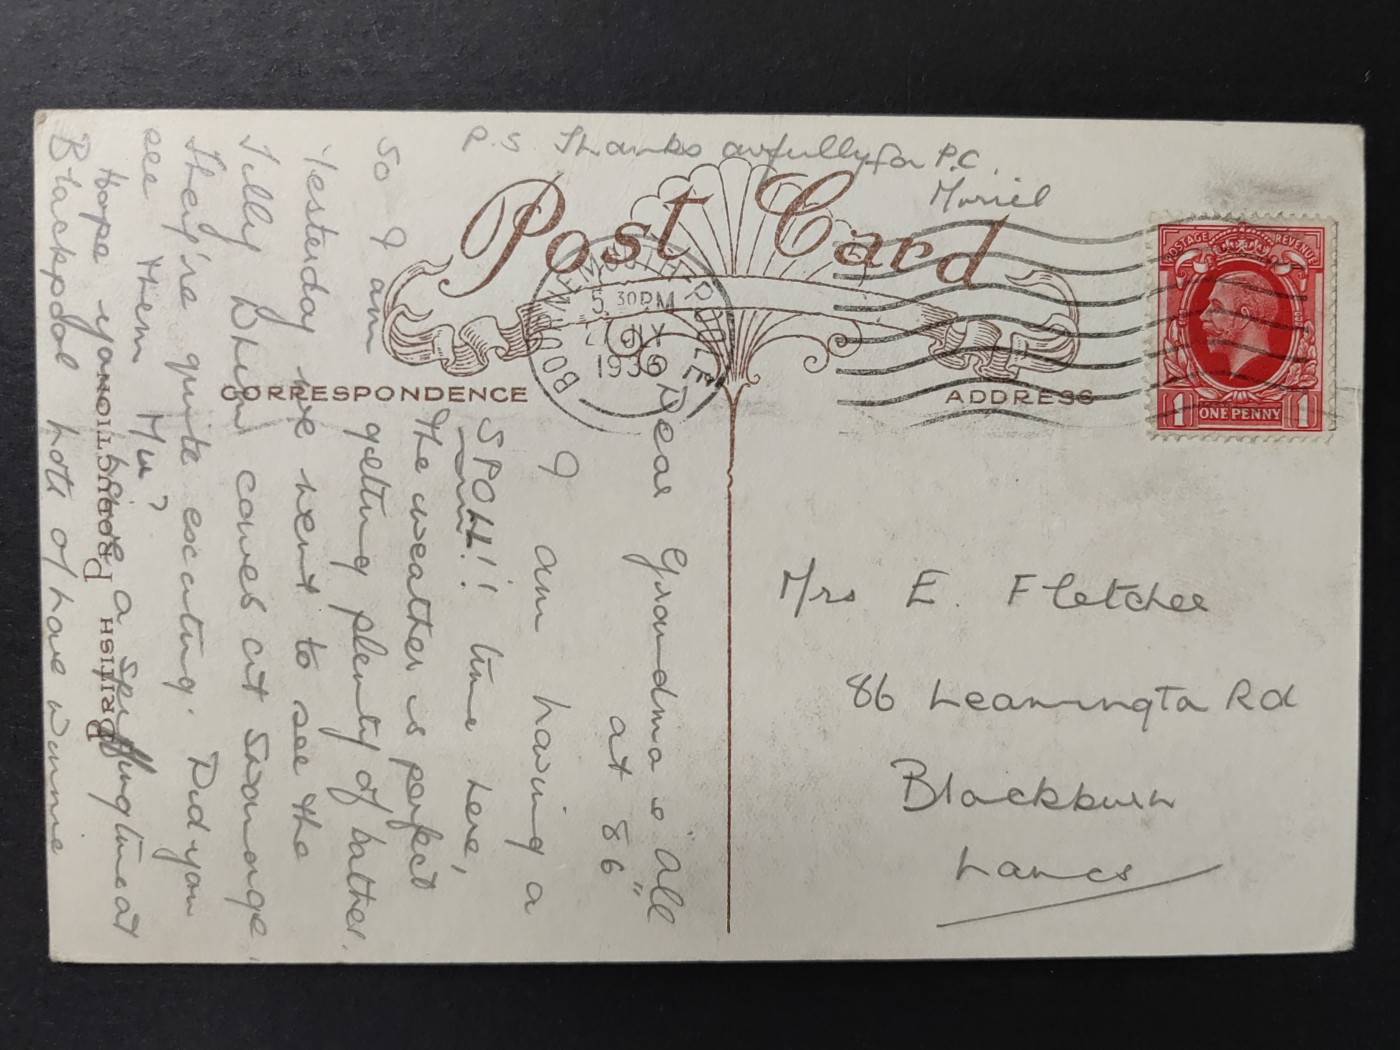 P.S. Thanks awfully for P.C.
Muriel
Post Card
BOURNEMOUTH POOLE
5.30PM
1936
CORRESPONDENCE
ADDRESS
POSTAGE REVENUE
1 ONE PENNY 1
Dear Grandma & All
at 86"
I am having a
SPOH!! time here,
The weather is perfect
So I am getting plenty of bathes.
Yesterday we went to see the
Tilly Whim caves at Swanage.
They're quite exciting. Did you
see them Mu?
Hope you have a spiffing time at
Blackpool both of
Mrs E. Fletcher
86 Leamington Rd
Blackburn
Lancs
BRITISH PRODUCTION